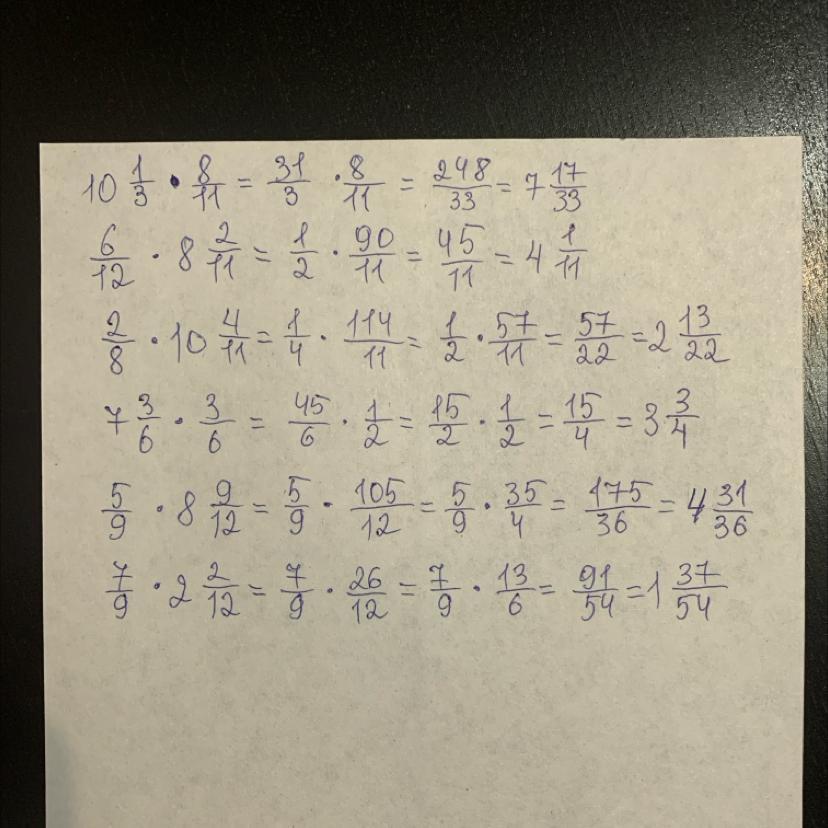 10 1/3 · 8/11 = 31/3 · 8/11 = 248/33 = 7 17/33
6/12 · 8 2/11 = 1/2 · 90/11 = 45/11 = 4 1/11
2/8 · 10 4/11 = 1/4 · 114/11 = 1/2 · 57/11 = 57/22 = 2 13/22
7 3/6 · 3/6 = 45/6 · 1/2 = 15/2 · 1/2 = 15/4 = 3 3/4
5/9 · 8 9/12 = 5/9 · 105/12 = 5/9 · 35/4 = 175/36 = 4 31/36
7/9 · 2 2/12 = 7/9 · 26/12 = 7/9 · 13/6 = 91/54 = 1 37/54